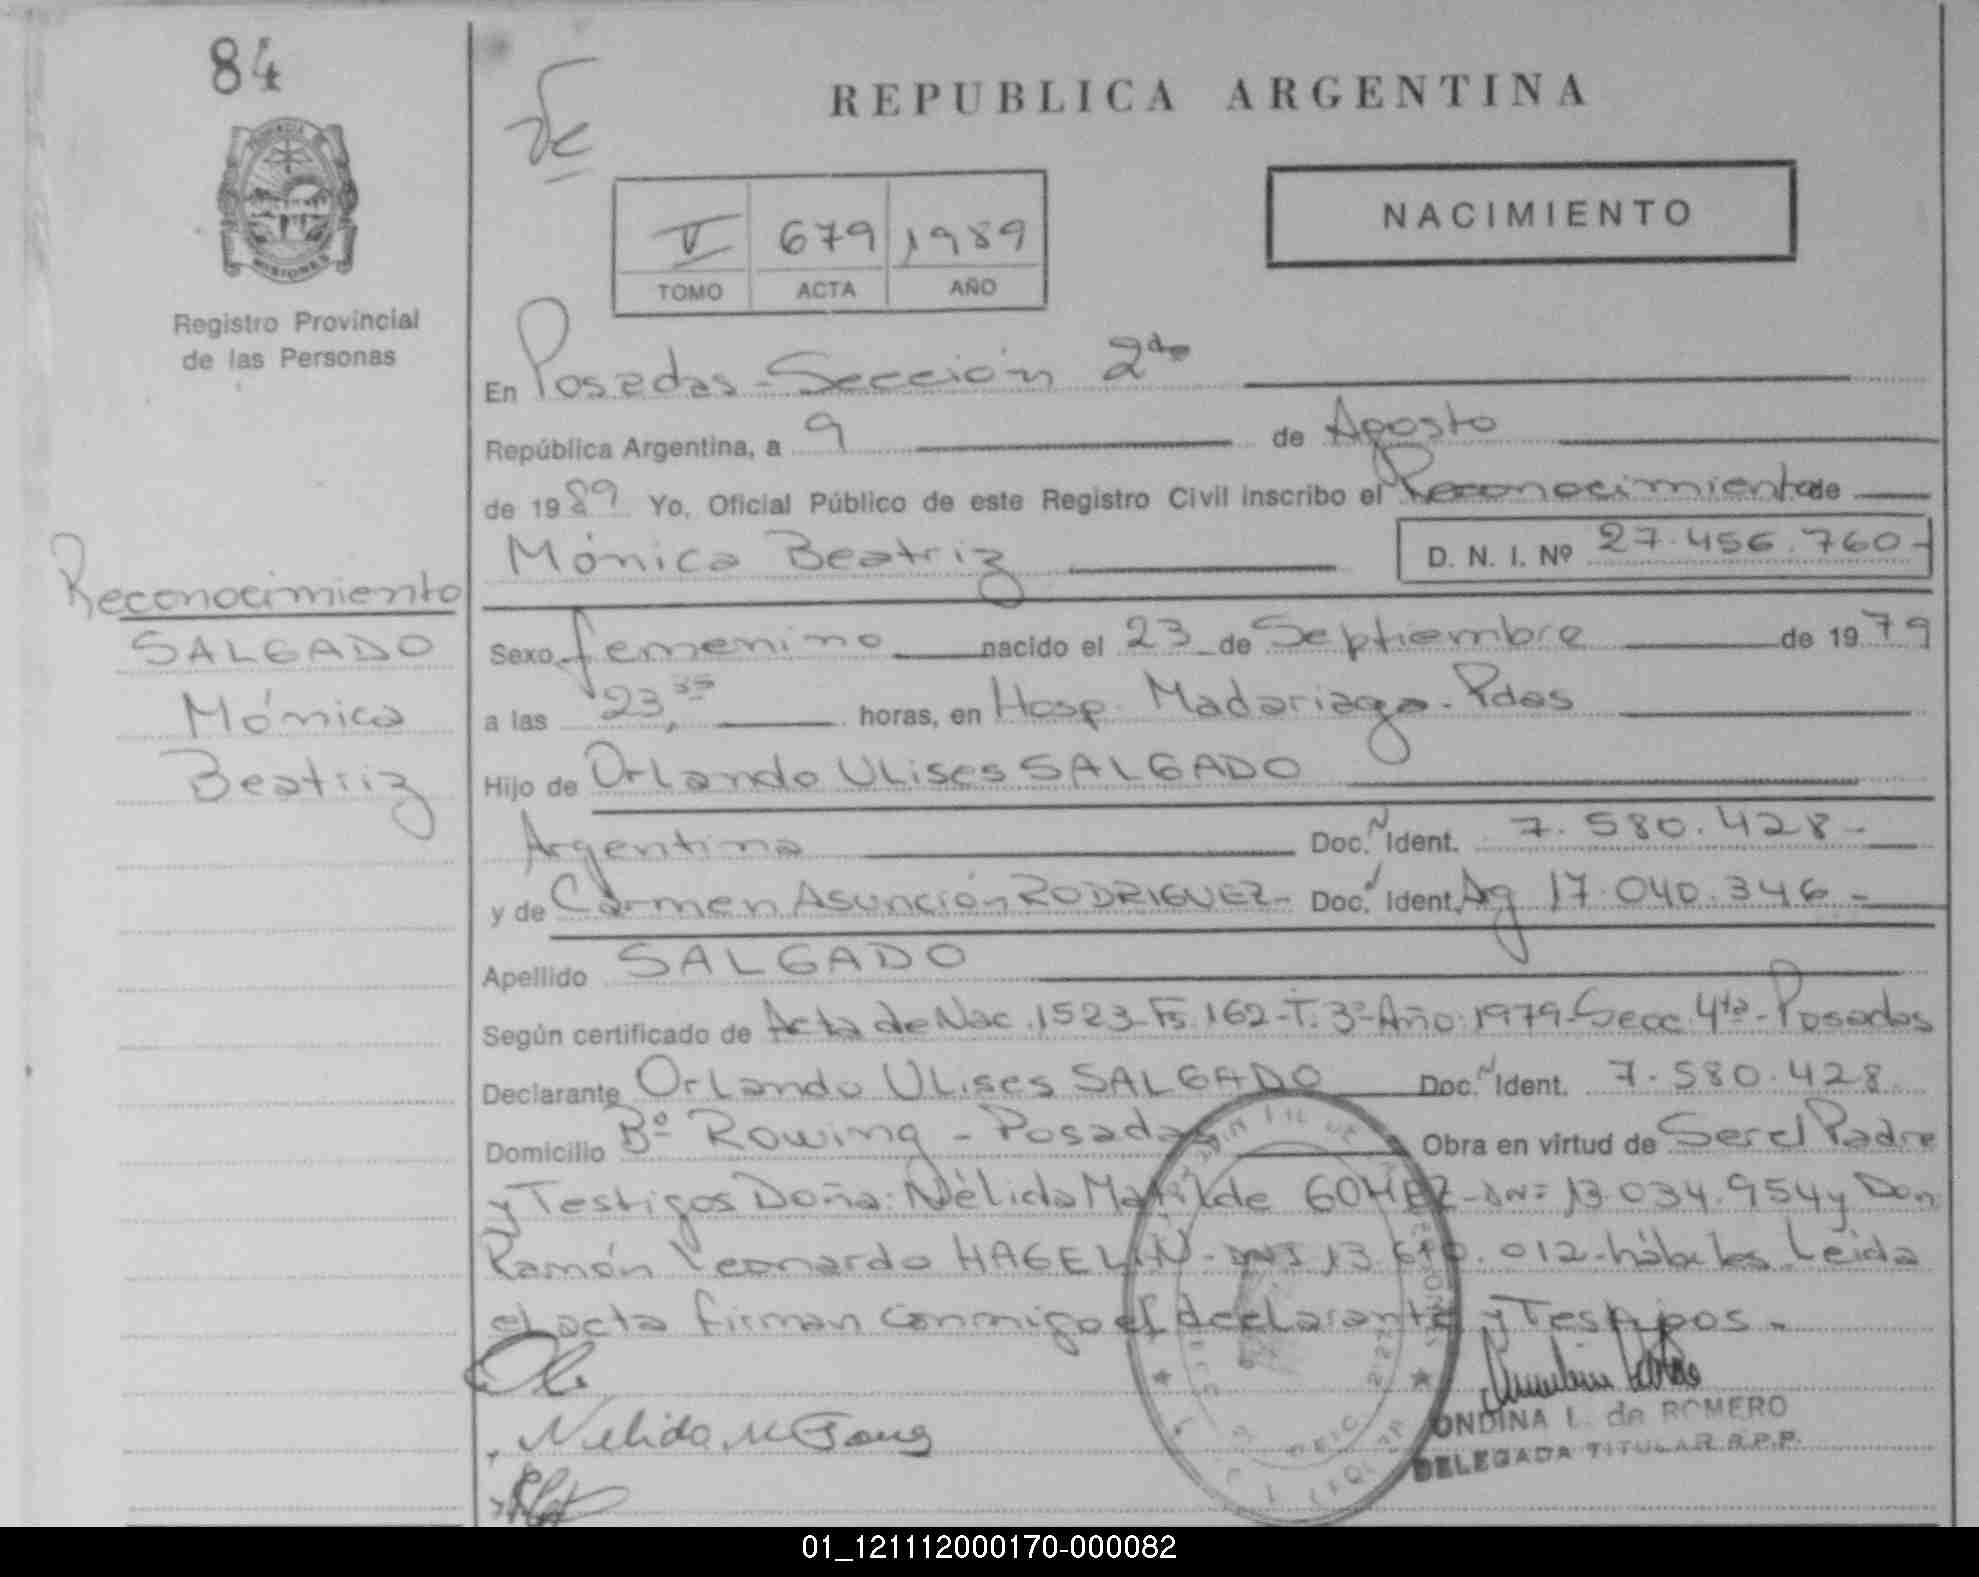 84
REPUBLICA ARGENTINA
NACIMIENTO
V 679 1989
TOMO ACTA AÑO
MISIONES
Registro Provincial
de las Personas
En Posadas - Sección 2da
República Argentina, a 9 de Agosto
de 1989 Yo, Oficial Público de este Registro Civil inscribo el Reconocimiento de
Mónica Beatriz D. N. I. Nº 27.456.760-
Reconocimiento
SALGADO
Mónica
Beatriz
Sexo femenino nacido el 23 de Septiembre de 1979
a las 23,35 horas, en Hosp. Madariaga - Pdas
Hijo de Orlando Ulises SALGADO
Argentina Doc. Ident. 7.580.428-
y de Carmen Asunción RODRIGUEZ- Doc. Ident. Ag 17.040.346-
Apellido SALGADO
Según certificado de Acta de Nac. 1523-Fs. 162-T. 3º-Año 1979-Secc 4ta-Posadas
Declarante Orlando Ulises SALGADO Doc. Ident. 7.580.428
Domicilio Bº Rowing - Posadas Obra en virtud de Ser el Padre
y Testigos Doña: Nélida Matilde GOMEZ - 13.034.954 y Don
Ramón Leonardo HAGELIN - DNI 13. .012-hábiles. Leida
el acta firman conmigo el declarante y Testigos.
Nelida M
ONDINA L. de ROMERO
DELEGADA TITULAR R.P.P.
01_121112000170-000082